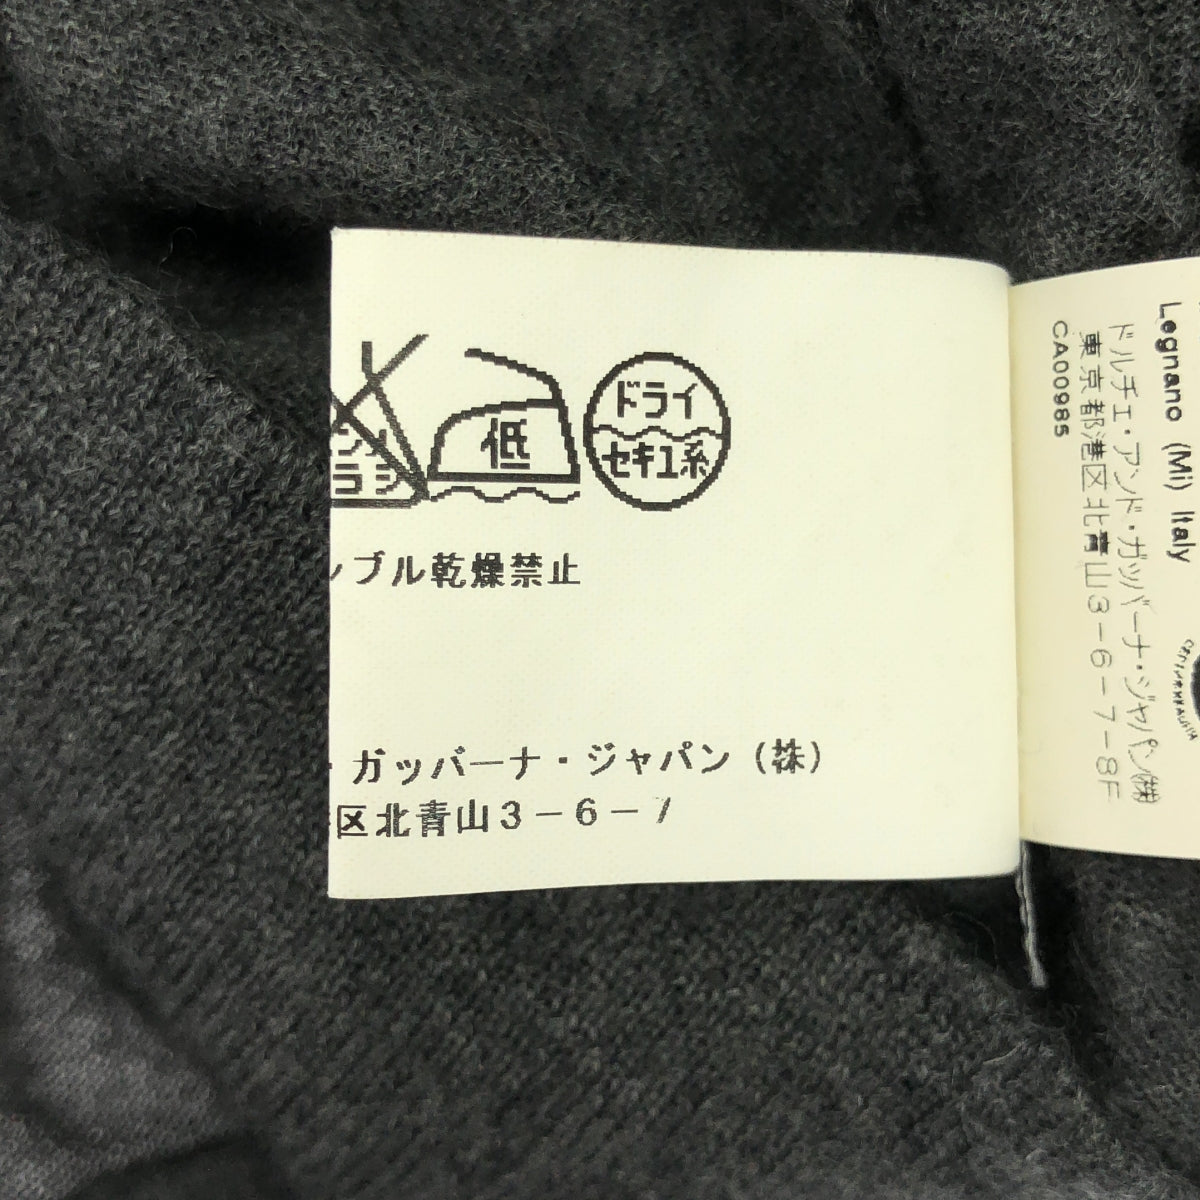 低
ドライ
セキユ系
ブル乾燥禁止
・ガッバーナ・ジャパン（株）
区北青山3－6－7
Legnano (Mi) Italy
ドルチェ・アンド・ガッバーナ・ジャパン㈱
東京都港区北青山3－6－7－8F
CA00985